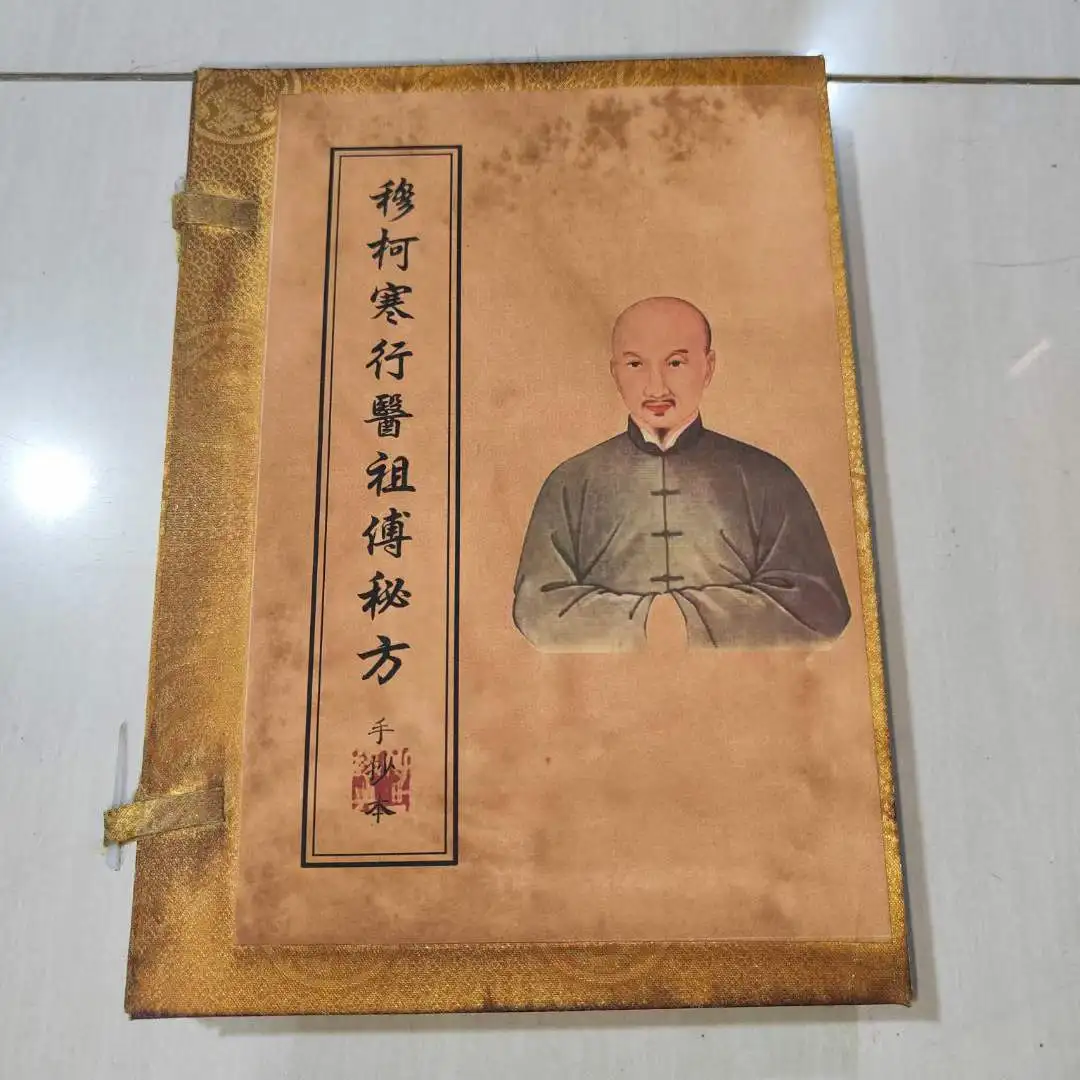 穆柯寒行醫祖傅秘方
手抄本